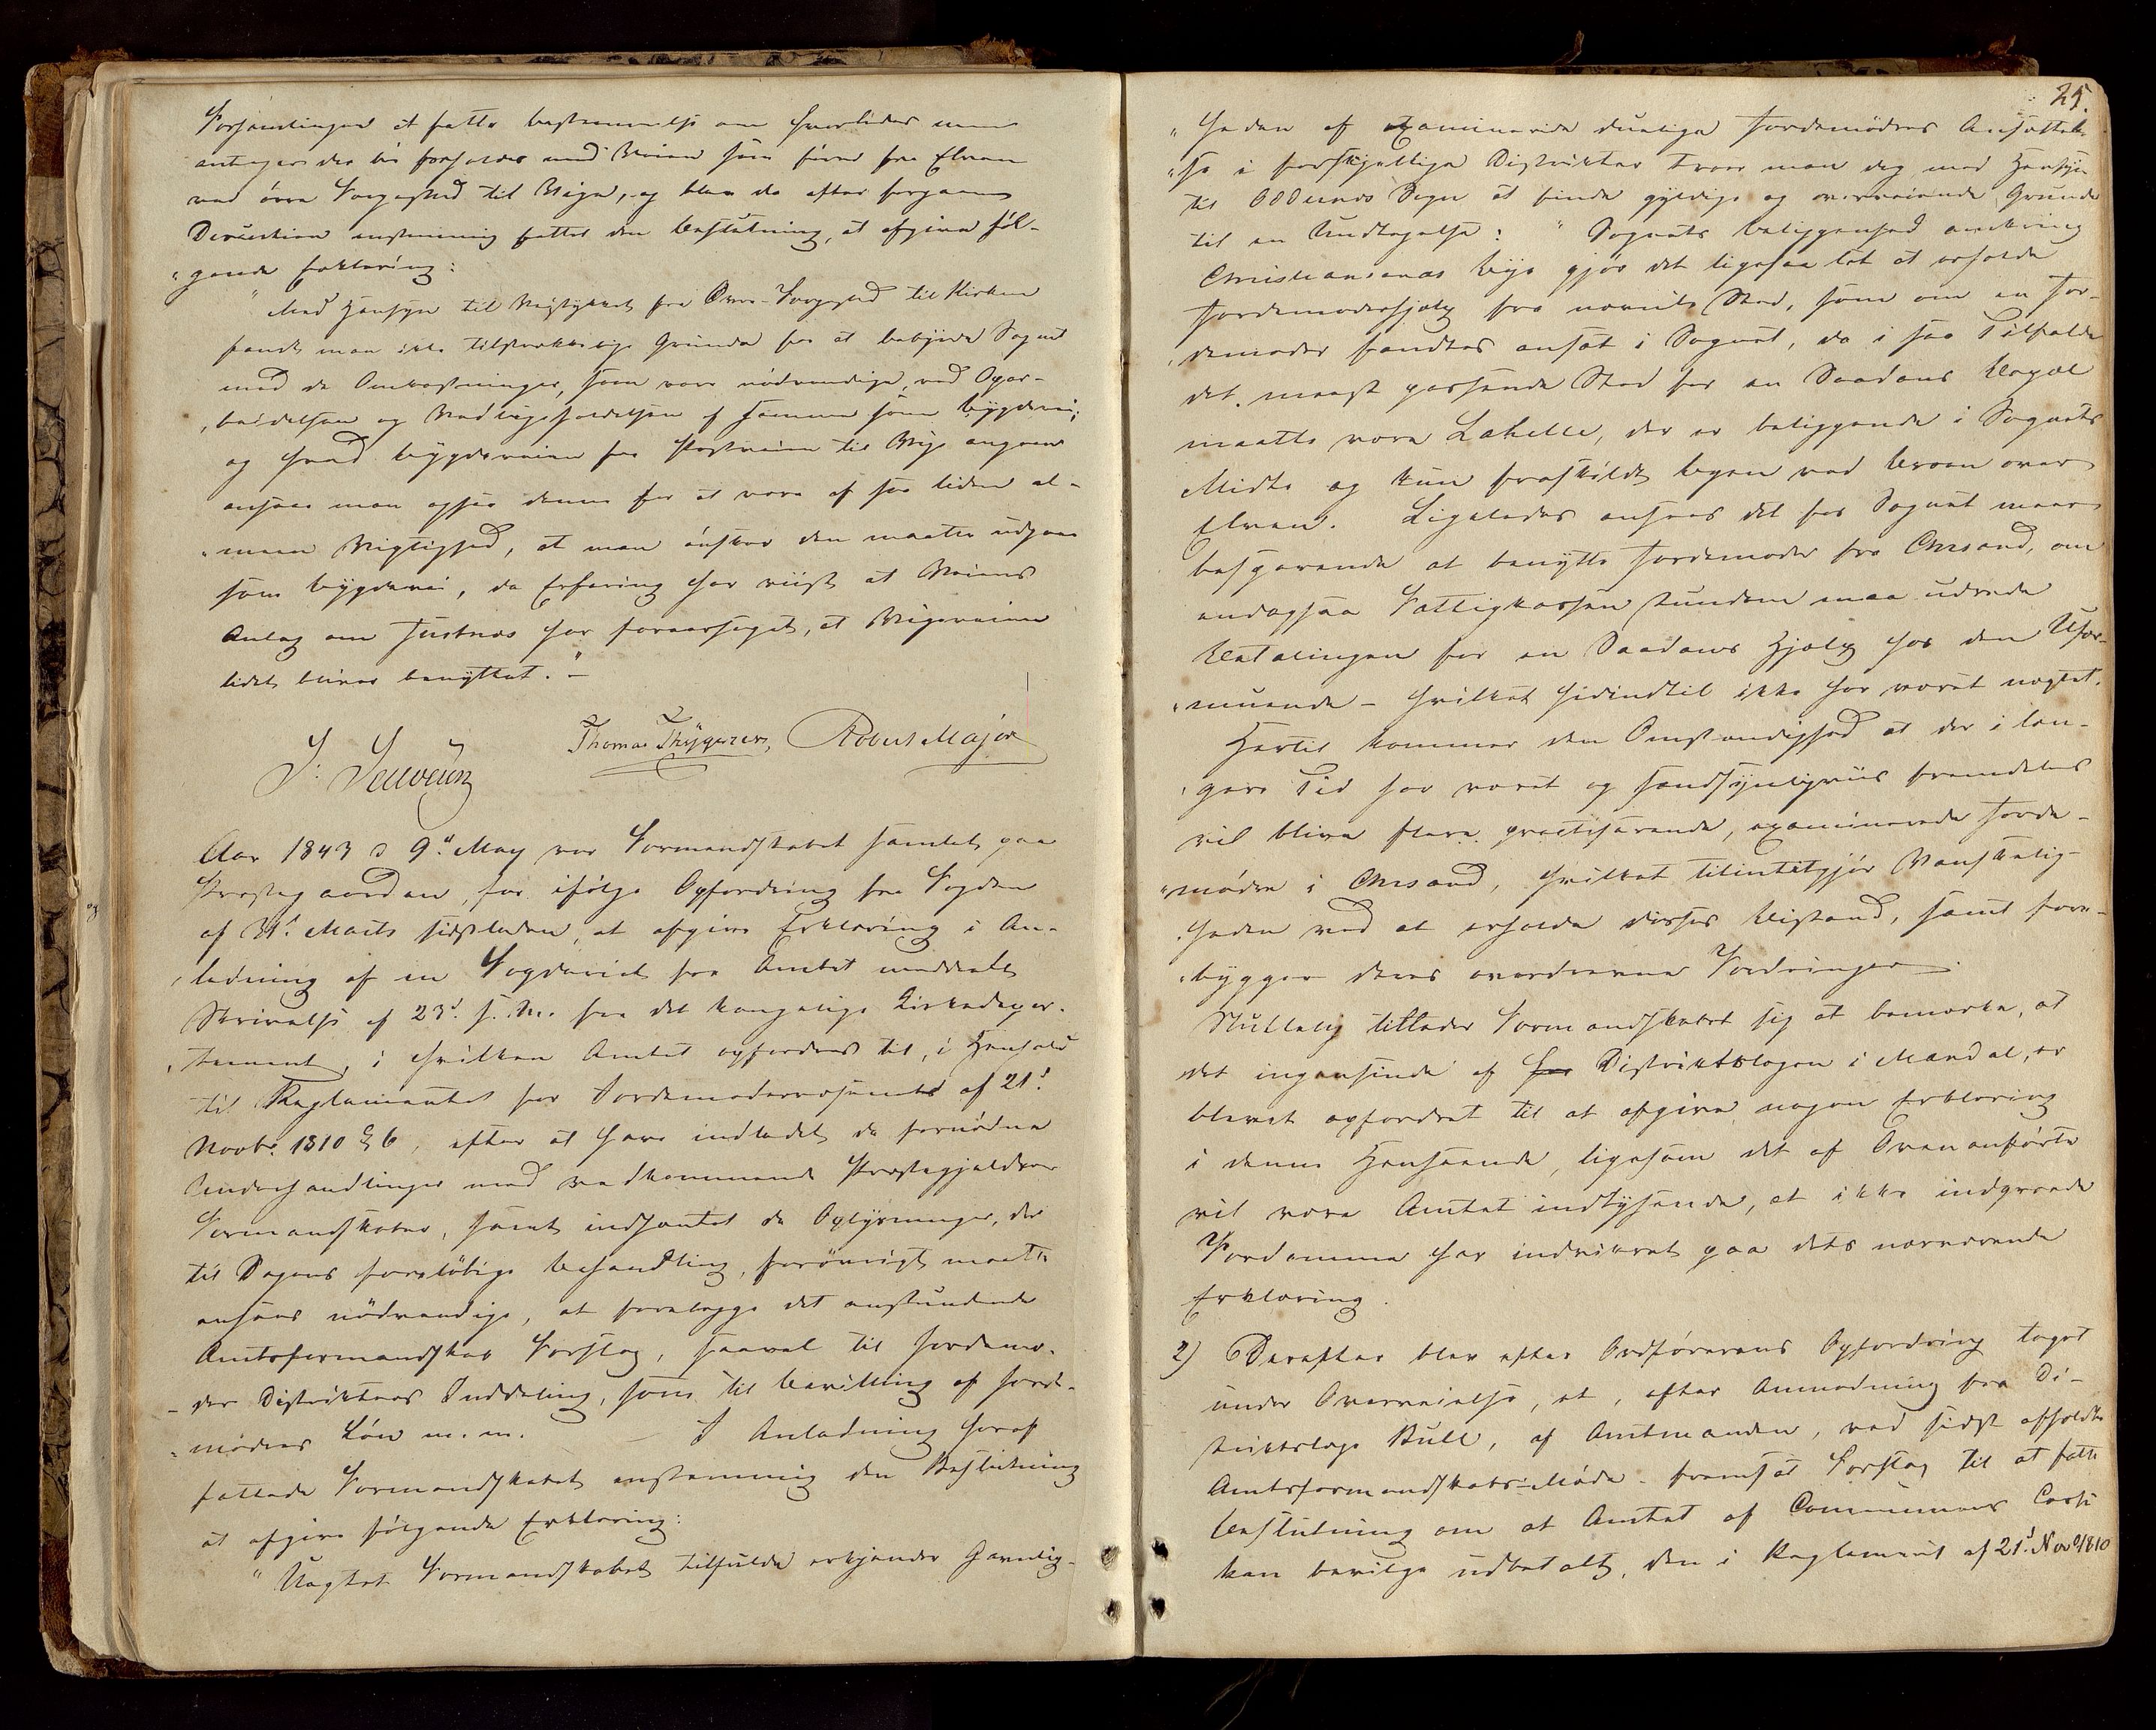 Forsamlingen at fatte bestemmelse om hvorledes man
antager der bør forholdes med Veien som fører fra Elven
ved øvre Vaagsted til Vige, og blev da efter foregaaende
Discution enstemmig fattet den Beslutning, at afgive føl-
"gende Erklæring:
"Med Hensyn til Veistykket fra Øvre-Vaagsted til Kirken
fandt man ikke tilstrækkelige Grunde for at bebyrde Sognet
med de Omkostninger, som vare nødvendige ved Opar-
"beidelsen og Vedligeholdelsen af samme som Bygdevei;
og hvad Bygdeveien fra Postveien til Vige angaaer
ansaae man ogsaa denne for at være af saa liden al-
"meen Vigtighed, at man ønsker den maatte udgaae
som Bygdevei, da Erfaring har viist at Veiens
Anlæg om Justnæs har foraarsaget, at Vigeveien
lidet bliver benyttet." –
J. Jeuveün Thomas Thÿgesen, Robert Major
Aar 1843 d 9d May var Formandskabet samlet paa
Præstegaarden, for ifølge Opfordring fra Fogden
af 31d Marts sidstleden, at afgive Erklæring i An-
"ledning af en Fogderiet fra Amtet meddeelt
Skrivelse af 23d s. M. fra det kongelige Kirkedepar-
"tement, i hvilken Amtet opfordres til, i Henhold
til Reglementet for Jordemodervæsenet af 21d
Novbr. 1810 § 6, efter at have indledet de fornødne
Underhandlinger med vedkommende Præstegjælders
Formandskaber, samt indhentet de Oplysninger, der
til Sagens foreløbige Behandling, forøvrigt maatte
ansees nødvendige, at forelægge det anstundende
Amtsformandskab Forslag, saavel til Jordemo-
-der Districternes Inddeling, som til Bevilling af Jorde-
"mødres Løn m. m. I Anledning heraf
fattede Formandskabet enstemmig den Beslutning
at afgive følgende Erklæring:
"Uagtet Formandskabet tilfulde erkjender Gavnlig-
25.
"heden af examinerede duelige Jordemødres Ansættel-
"se i forskjellige Districter troer man dog med Hensyn
til Oddernes Sogn at finde gyldige og overveiende Grunde
til en Undtagelse: "Sognets beliggenhed omkring
Christiansands Bye gjør det ligesaa let at erholde
Jordemoderhjælp fra nævnte Sted, som om en Jor-
"demoder fandtes ansat i Sognet, da i saa Tilfælde
det meest passende Sted for en Saadans Bopæl
maatte være Lahelle, der er beliggende i Sognets
Midte og kun fraskildt Byen ved Broen over
Elven. Ligeledes ansees det for Sognet meere
besparende at benytte Jordemoder fra Chrsand, om
endogsaa Fattigkassen stundom maa udrede
Betalingen for en Saadans Hjælp hos den Ufor-
"muende – hvilket hidindtil ikke har været nægtet.
Hertil kommer den Omstændighed at der i læn-
"gere Tid har været og sandsynligviis fremdeles
vil blive flere practiserende, examinerede Jorde-
"mødre i Chrsand, hvilket tilintetgjør Vanskelig-
"heden ved at erholde disses Bistand, samt fore-
"bygger deres overdrevne Fordringer.
Sluttelig tillader Formandskabet sig at bemærke, at
det ingensinde af Districtslægen i Mandal, er
blevet opfordret til at afgive nogen Erklæring
i denne Henseende, ligesom det af Ovenanførte
vil være Amtet indlysende, at ikke indgroede
Fordomme har indvirket paa dets nærværende
Erklæring.
2) Derefter blev efter Ordførerens Opfordring taget
under Overveielse, et, efter Anmodning fra Di-
strictslæge Bull, af Amtmanden, ved sidst afholdte
Amtsformandskabs-Møde fremsat Forslag til at fatte
Beslutning om at Amtet af Communens Casse
kan bevilge udbetalt, den i Reglement af 21d Novb 1810